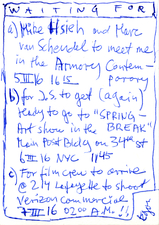 WAITING FOR
a) Mike Hsieh and Marc
van Scheudel to meet me
in the Armory Contem-
5 III 16 16 15 porary
b) for J.S. to get (again)
ready to go to "SPRING-
Art show in the BREAK"
Main Post Bldg on 34th st
6 III 16 NYC 1145
c) For film crew to arrive
@ 214 Lafayette to shoot
Verizon commercial
7 III 16 0200 A.M.!!